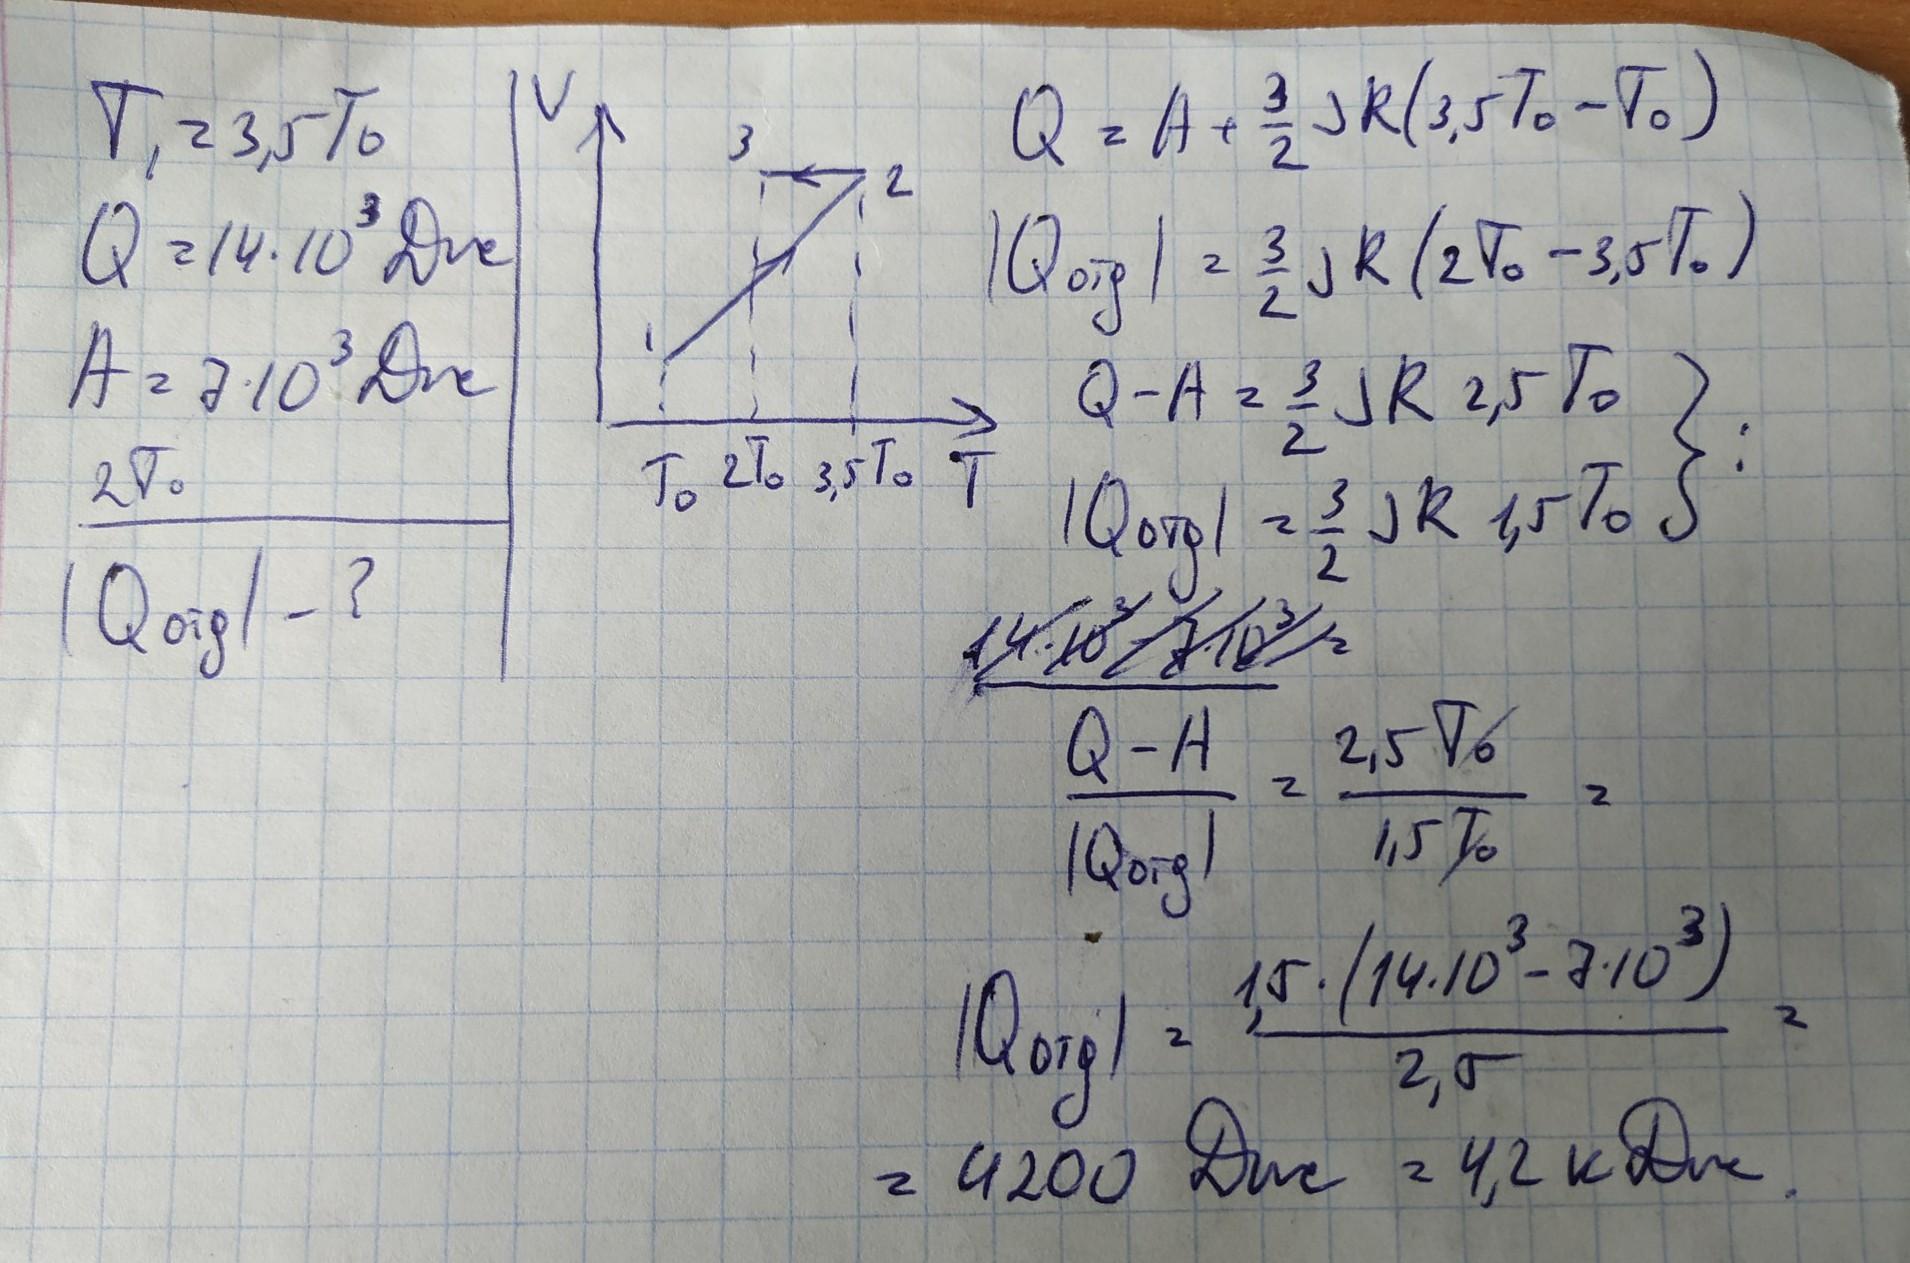 T₁ = 3,5T₀
Q = 14·10³ Дж
A = 7·10³ Дж
2T₀
|Qотд| - ?
V
3
2
1
T₀ 2T₀ 3,5T₀ T
Q = A + 3/2 νR(3,5T₀ - T₀)
|Qотд| = 3/2 νR(2T₀ - 3,5T₀)
Q - A = 3/2 νR 2,5T₀
|Qотд| = 3/2 νR 1,5T₀ } :
14·10³ - 7·10³ =
(Q - A)/|Qотд| = 2,5T₀/1,5T₀ =
|Qотд| = 1,5·(14·10³ - 7·10³)/2,5 =
= 4200 Дж = 4,2 кДж.